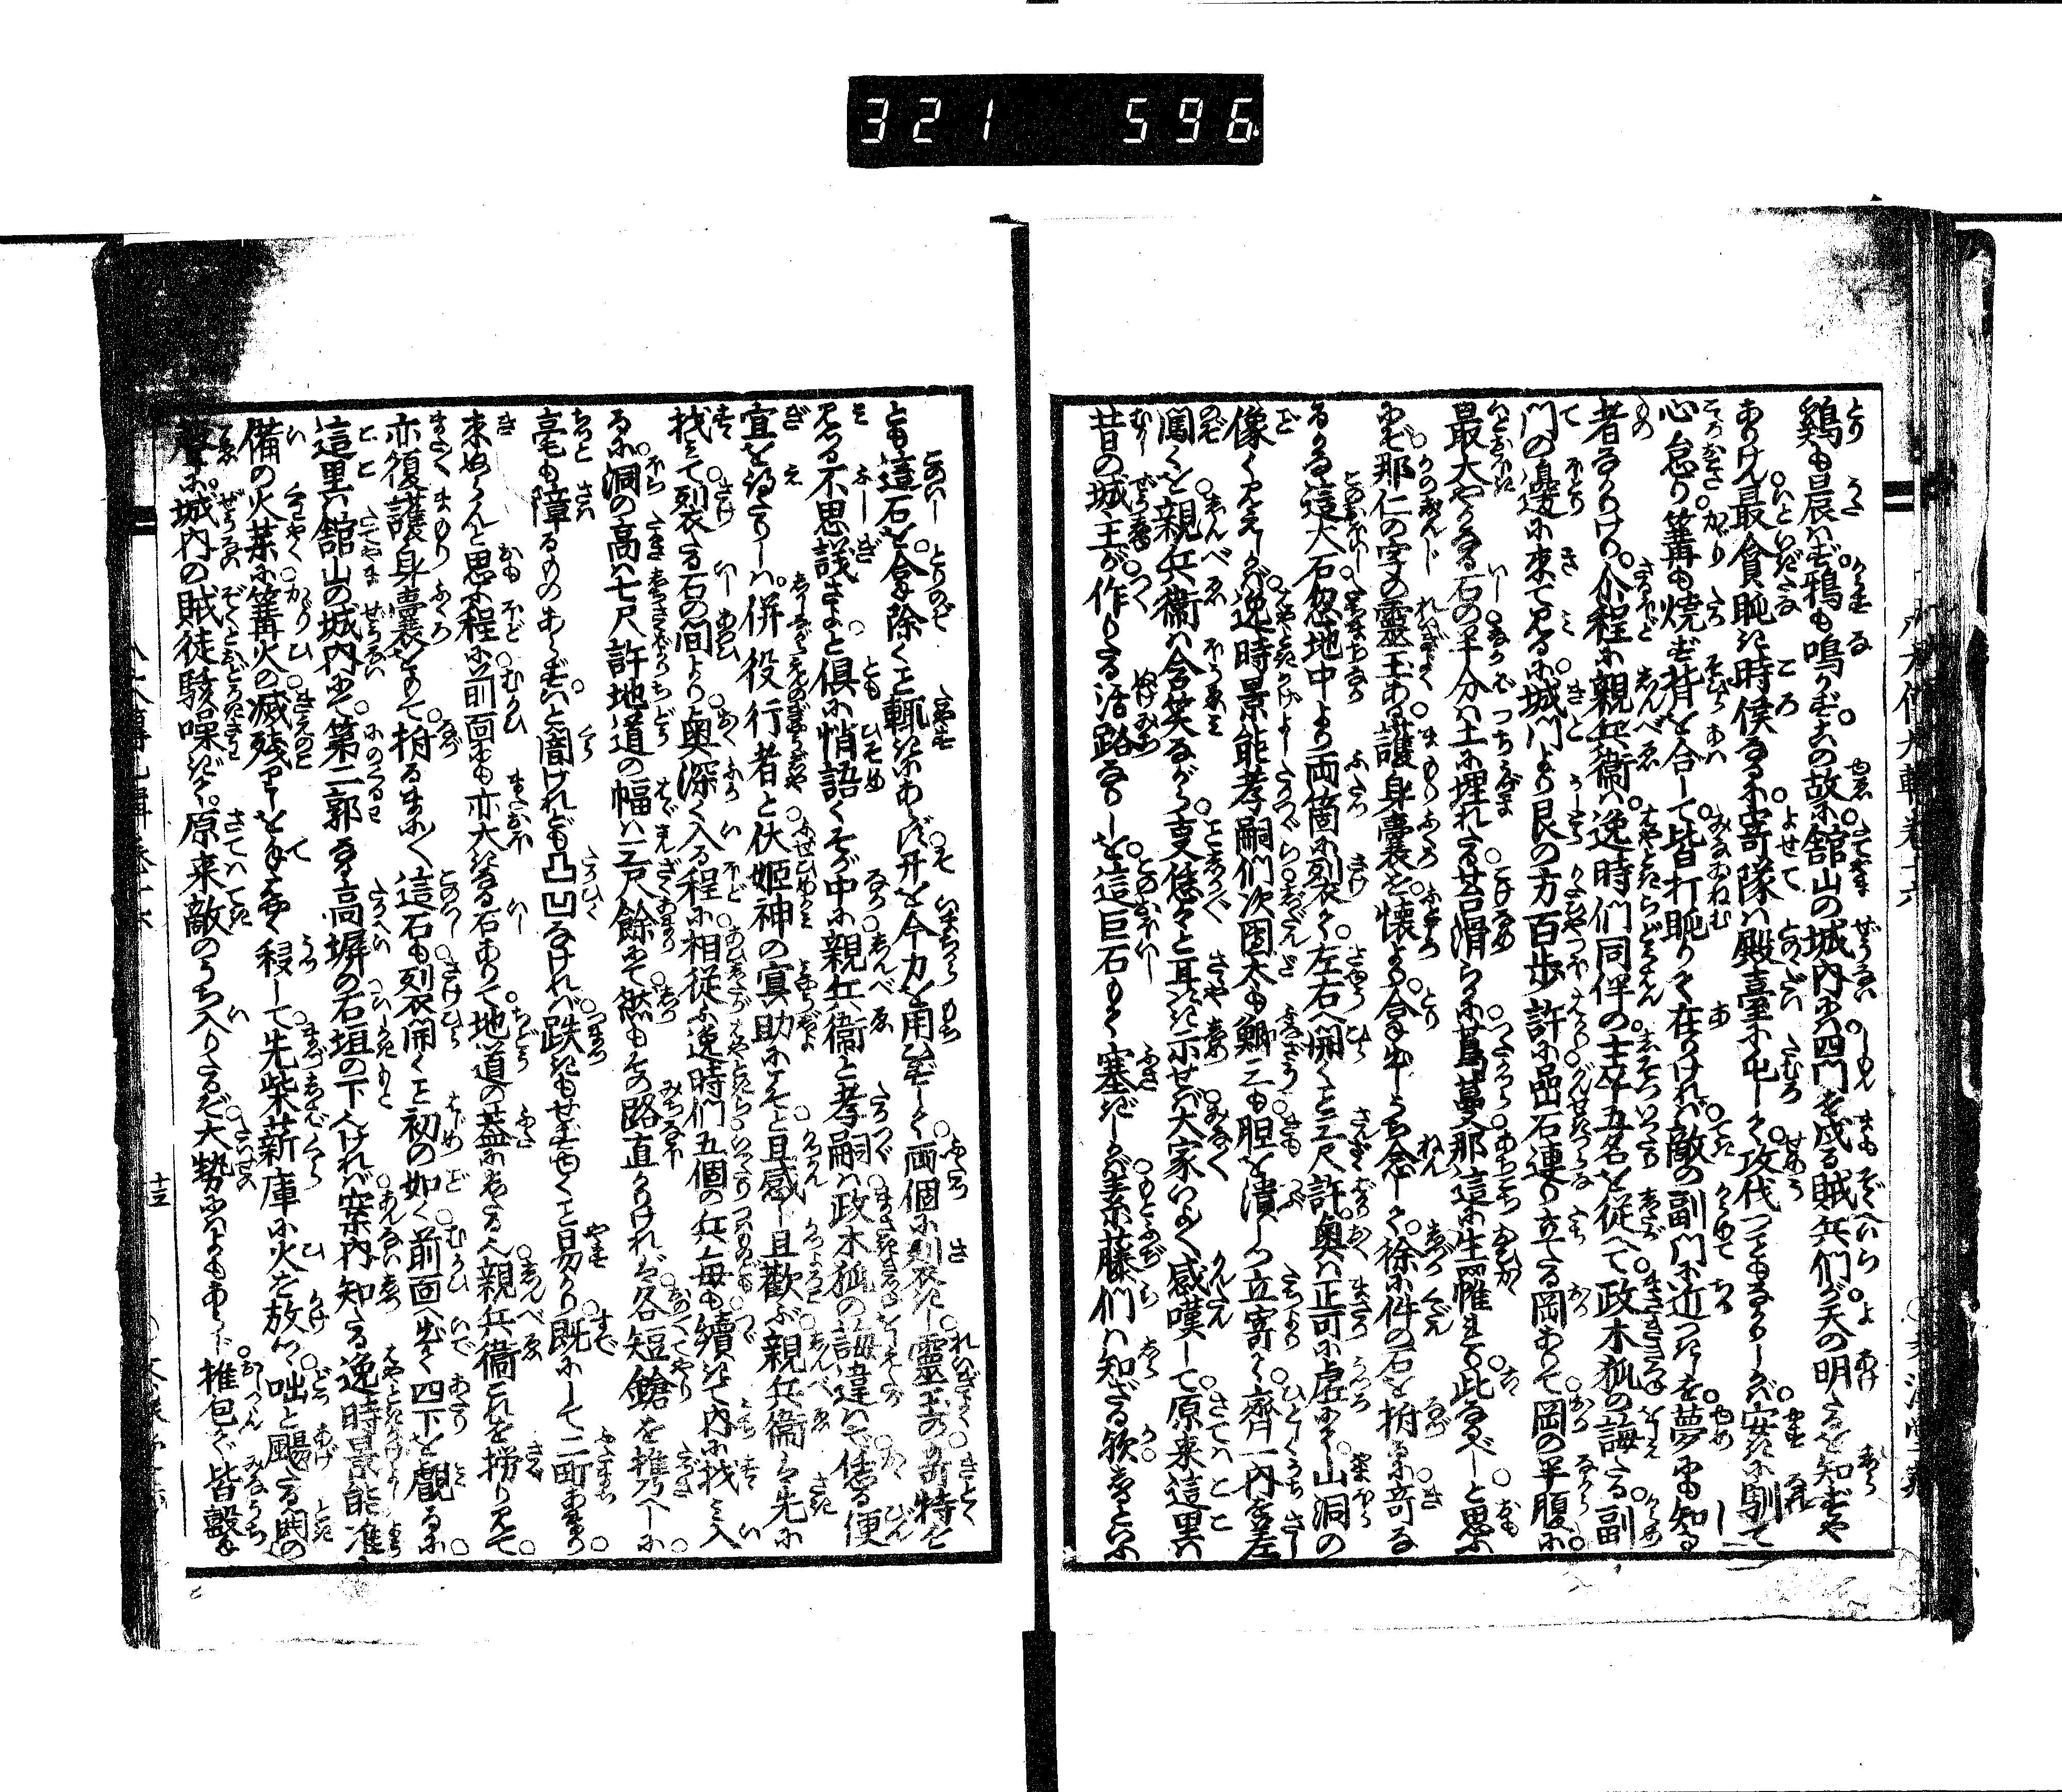 321 596
鶏も晨はず鴉も鳴かず。この故に館山の城内には四門を戍る賊兵們が天の明たるを知ずや
ありけん最貪眠き時候なるに寄隊は殿臺に屯して攻伐つこともなかりしが安きに馴て
心怠り篝も焼ず背を合して皆打眠りて在りければ敵の副門に近つきしを夢にも知る
者なかりけり。介程に親兵衛は逸時們同伴の士卒五名を従へて政木狐の誨たる副
門の邊に来て見るに城門より艮の方百歩許に品石連り立たる岡ありて岡の半腹に
最大やかなる石の半分は土に埋れたる苔滑らかに蔦蔓那這に生罹れる此なるべしと思ふ
にぞ那仁の字の霊玉ある護身嚢を懐より拿出しうち念じて徐に件の石を拊るに奇なる
かな這大石忽地中より両箇に裂て左右へ開くこと三尺許奥は正可に虚にて山洞の
像く見えしかば逸時景能孝嗣們次団太も鯽三も胆を潰しつ立寄て齊一内を差
闖くを親兵衛は含笑ながら支住々々と耳に示せば大家いよよ感嘆して原来這里は
昔の城主が作りたる活路なりしを這巨石もて塞ぎしが素藤們は知ざる欤知るといふ
とも這石を拿除くこと輙きにあらず开を今力を用ひずして両個に裂きし霊玉の奇特を
見る不思議さよと倶に悄語くそが中に親兵衛と孝嗣は政木狐の誨違はで恁る便
宜を得たりしは併役行者と伏姫神の冥助にこそと且感じ且歓ぶ親兵衛は先に
找みて裂たる石の間より奥深く入る程に相従ふ逸時們五個の兵毎も續きて内に找み入
るに洞の高は七尺許地道の幅は三尺餘にて然もその路直かりければ各短鎗を携へしに
毫も障るものあらずいと闇けれども凸凹なければ跌きもせず行くこと易かり既にして二町あまり
来ぬらんと思ふ程に前面にも亦大きなる石ありて地道の蓋にしたる也親兵衛これを撈り見て
亦復護身嚢をもて拊るに這石も裂開くこと初の如く前面へ出て四下を覰るに
這里は館山の城内にて第二郭なる高塀の石垣の下なければ案内知たる逸時景能准
備の火薬に篝火の滅残りしをとりて移して先柴薪庫に火を放ち咄と颺たる鬨の
聲に城内の賊徒駭き噪ぎ原来敵のうち入りたるぞ大勢にはよもあらじ推包て皆鏖に
十五